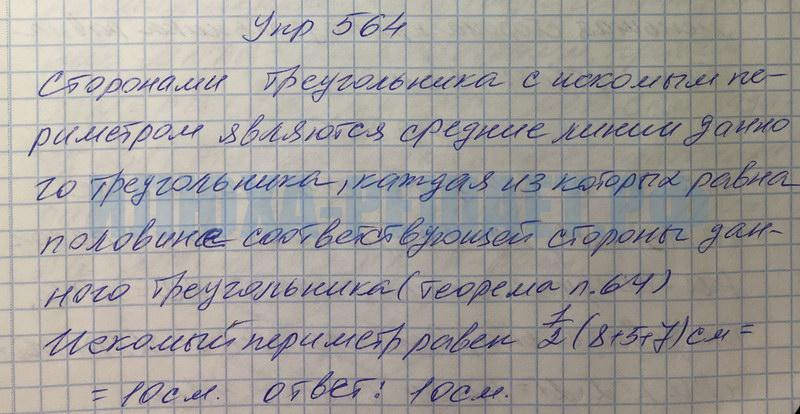 Упр 564
Сторонами треугольника с искомым пе-
риметром являются средние линии данно
го треугольника, каждая из которых равна
половине соответствующей стороны дан-
ного треугольника (теорема п.64)
Искомый периметр равен 1/2 (8+5+7) см =
= 10 см. ответ: 10 см.